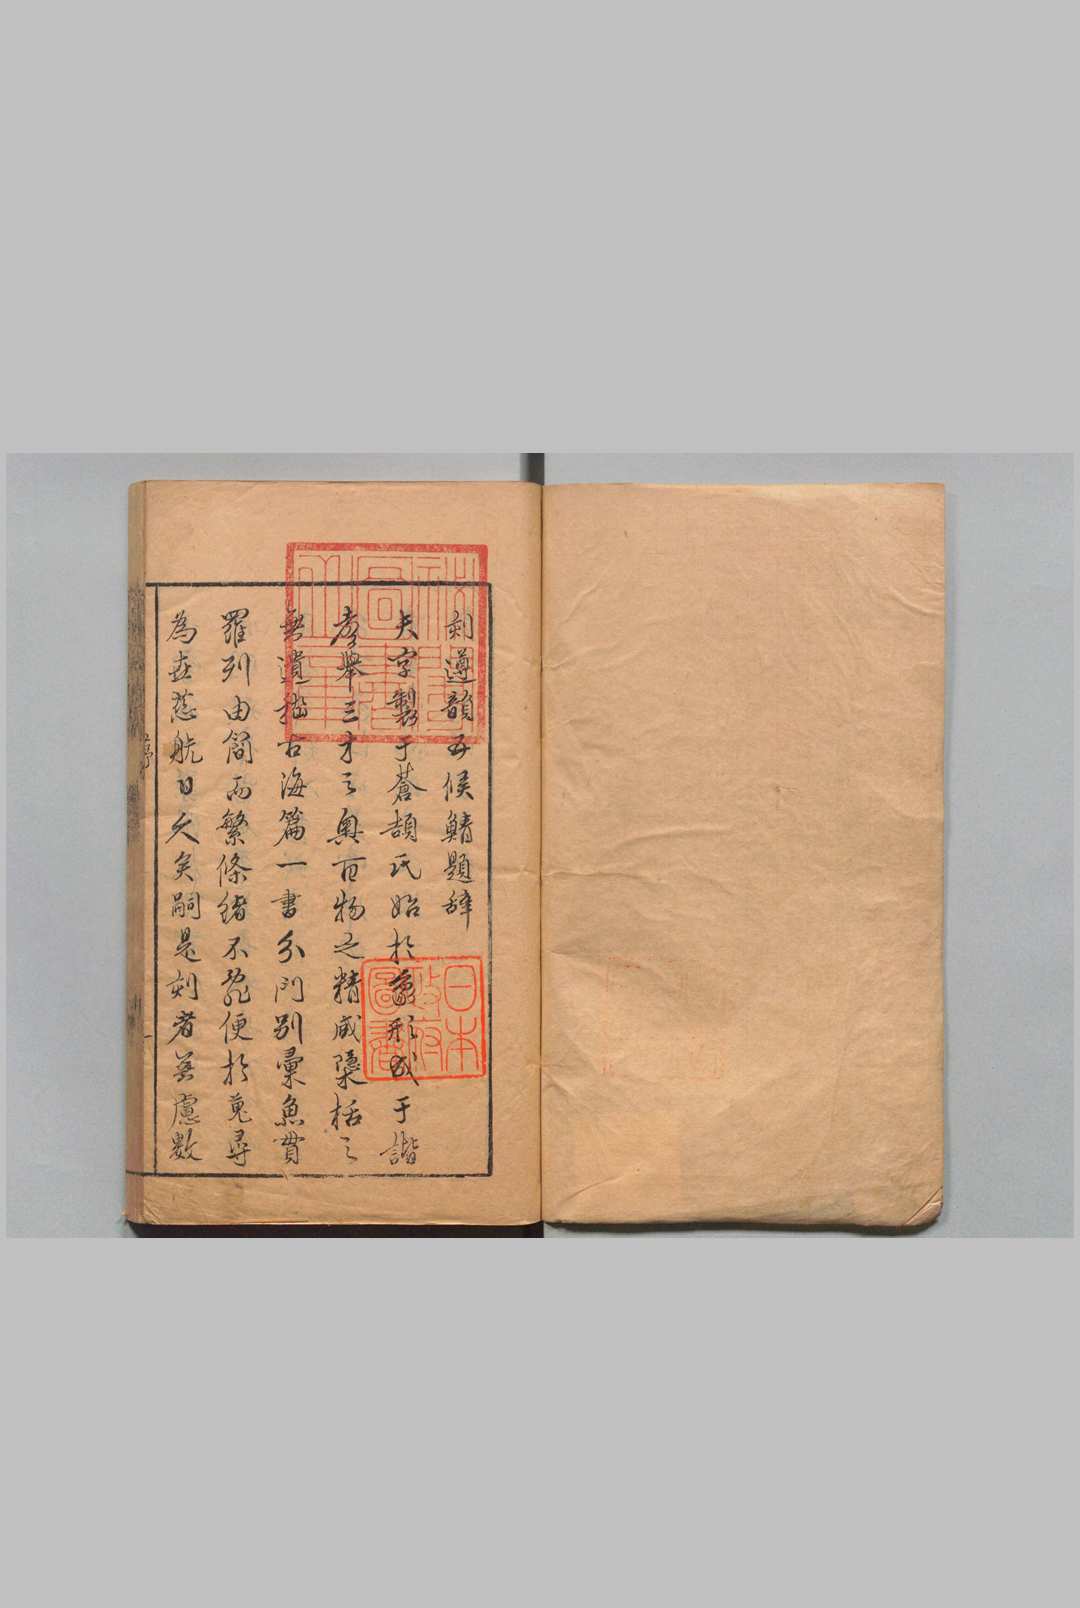 刻遵韻五侯鯖題辭
夫字製于蒼頡氏始於象形成于諧
聲舉三才之奧百物之精咸隱括之
無遺稽古海篇一書分門別彙魚貫
羅列由簡而繁條緒不亂便於蒐尋
為世慈航日久矣嗣是刻者無慮數
序
一
祕閣圖書之章
日本政府圖書